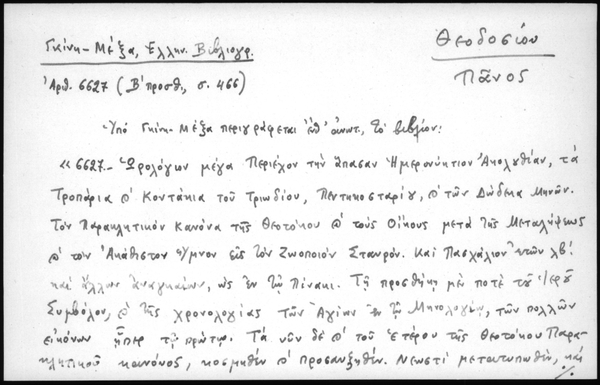 Γκίνη - Μέξα, Ἑλλην. Βιβλιογρ.
Θεοδοσίου
Πᾶνος
Ἀριθ. 6627 (Β' προσθ., σ. 466)
Ὑπό Γκίνη - Μέξα περιγράφεται ἐπ' ἀνωτ. τό βιβλίον:
«6627.- Ὡρολόγιον μέγα Περιέχον τήν ἅπασαν Ἡμερονύκτιον Ἀκολυθίαν, τά
Τροπάρια & Κοντάκια τοῦ Τριωδίου, Πεντηκοσταρίȣ, & τῶν Δώδεκα Μηνῶν.
Τόν Παρακλητικόν Κανόνα τῆς Θεοτόκου & τούς Οἴκους μετά τῆς Μεταλήψεως
& τόν Ἀκάθιστον Ὕμνον εἰς τόν Ζωοποιόν Σταυρόν. Καί Πασχάλιον ἐτῶν λβ'.
καί ἄλλων ἀναγκαίων, ὡς ἐν τῷ Πίνακι. Τῇ προσθήκῃ μέν ποτέ τοῦ Ἱερȣ͂
Συμβόλου, & τῆς χρονολογίας τῶν Ἁγίων ἐν τῷ Μηνολογίῳ, τῶν πολλῶν
εἰκόνων ὑπέρ τό πρῶτον. Τά νῦν δέ & τοῦ ἑτέρου τῆς Θεοτόκου Παρα-
κλητικοῦ κανόνος, κοσμηθέν & προσαυξηθέν. Νεωστί μετατυπωθέν, καί
./.